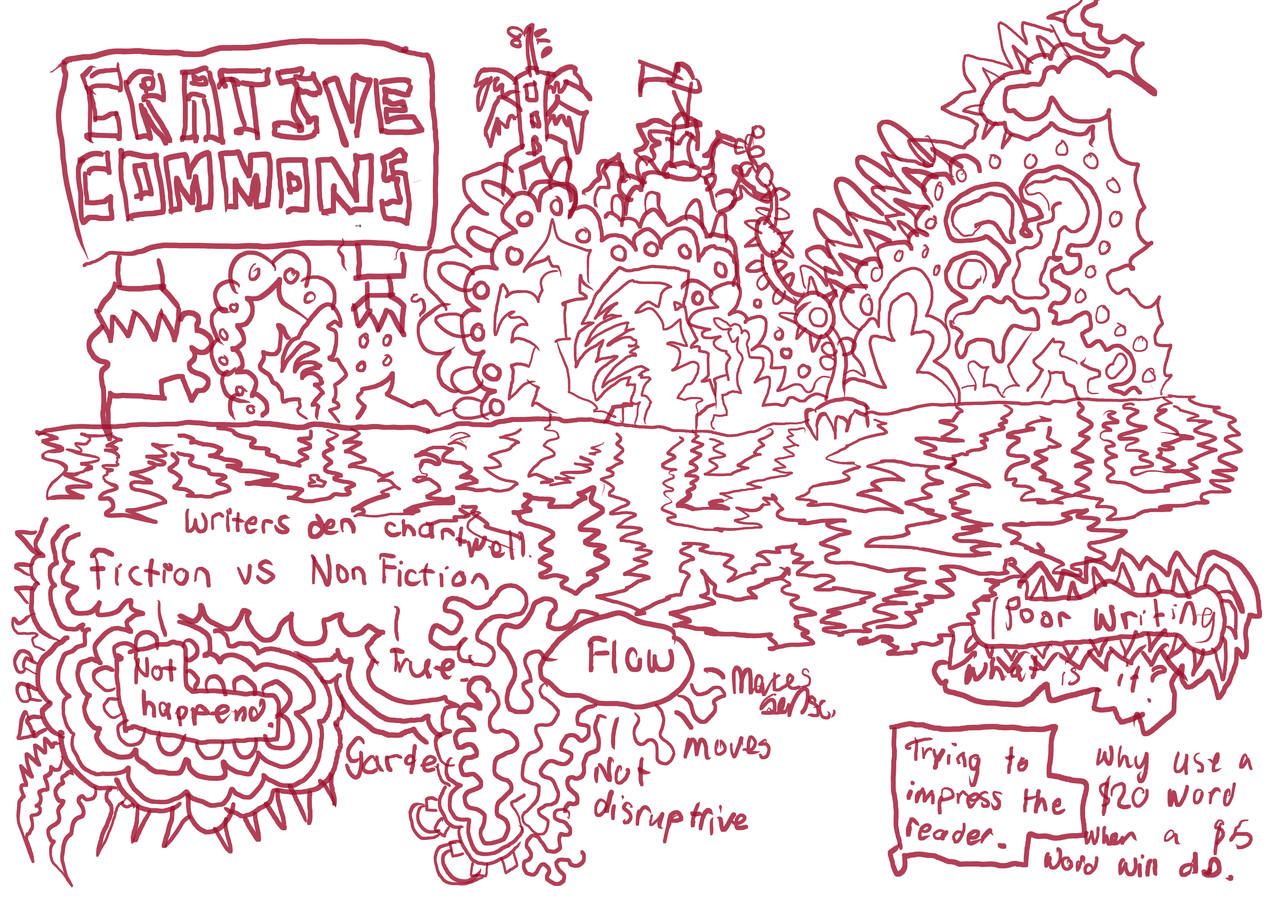 CRATIVE
COMMONS
Writers den chartwell.
fiction vs Non Fiction
Not
happend.
True
Garden
Flow
Makes
sense.
moves
Not
disruptrive
Poor Writing
What is it?
Trying to
impress the
reader.
Why use a
$20 word
when a $5
word will do.